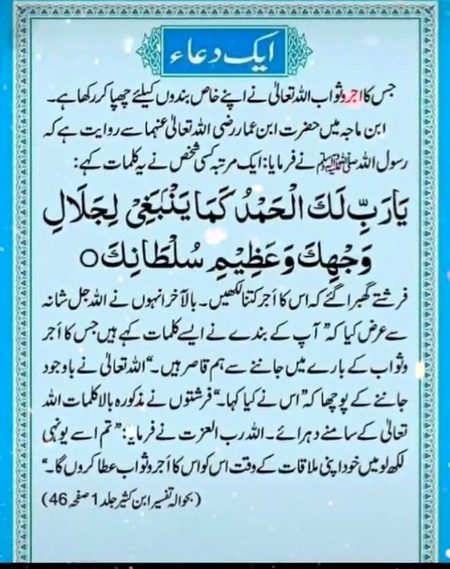 ایک دعاء
جس کا اجر و ثواب اللہ تعالیٰ نے اپنے خاص بندوں کیلئے چھپا کر رکھا ہے۔
ابن ماجہ میں حضرت ابن عمار رضی اللہ تعالیٰ عنہما سے روایت ہے کہ
رسول اللہ ﷺ نے فرمایا: ایک مرتبہ کسی شخص نے یہ کلمات کہے:
يَارَبِّ لَكَ الْحَمْدُ كَمَا يَنْبَغِيْ لِجَلَالِ
وَجْهِكَ وَعَظِيْمِ سُلْطَانِكَ ○
فرشتے گھبرا گئے کہ اس کا أجر کتنا لکھیں۔ بالآخر انہوں نے اللہ جل شانہ
سے عرض کیا کہ ”آپ کے بندے نے ایسے کلمات کہے ہیں جس کا أجر
و ثواب کے بارے میں جاننے سے ہم قاصر ہیں۔“ اللہ تعالیٰ نے باوجود
جاننے کے پوچھا کہ ”اس نے کیا کہا۔“ فرشتوں نے مذکورہ بالا کلمات اللہ
تعالیٰ کے سامنے دہرائے۔ اللہ رب العزت نے فرمایا: ”تم اسے یونہی
لکھ لو میں خود اپنی ملاقات کے وقت اس کو اس کا أجر و ثواب عطا کروں گا۔“
(بحوالہ تفسیر ابن کثیر جلد 1 صفحہ 46)